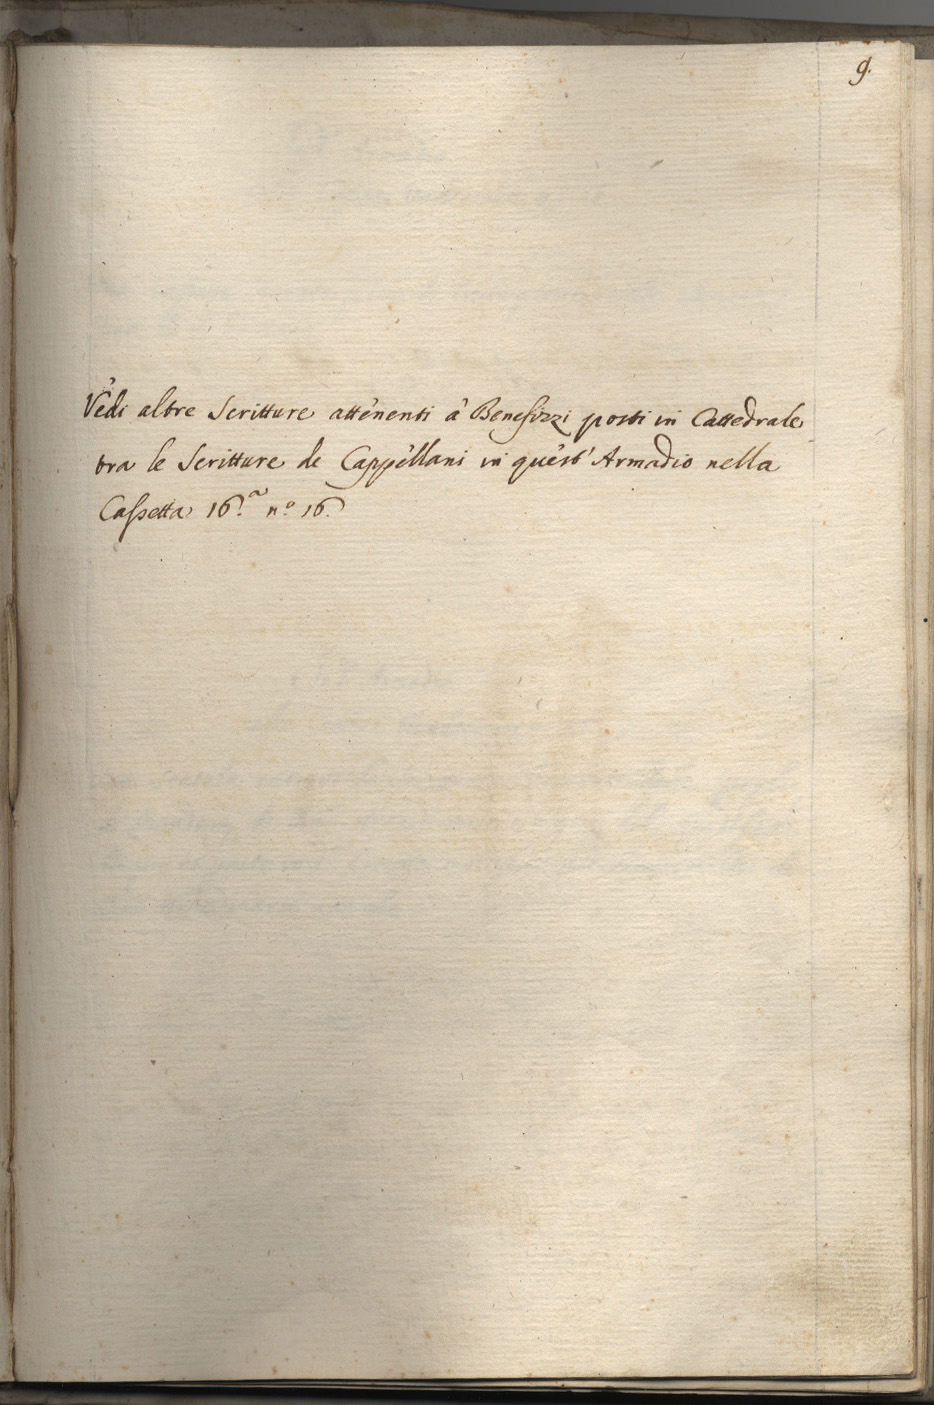 9.
Vedi altre Scritture attenenti à Benefizzi posti in Cattedrale
tra le Scritture de Cappellani in quest' Armadio nella
Cassetta 16.ª nº 16.